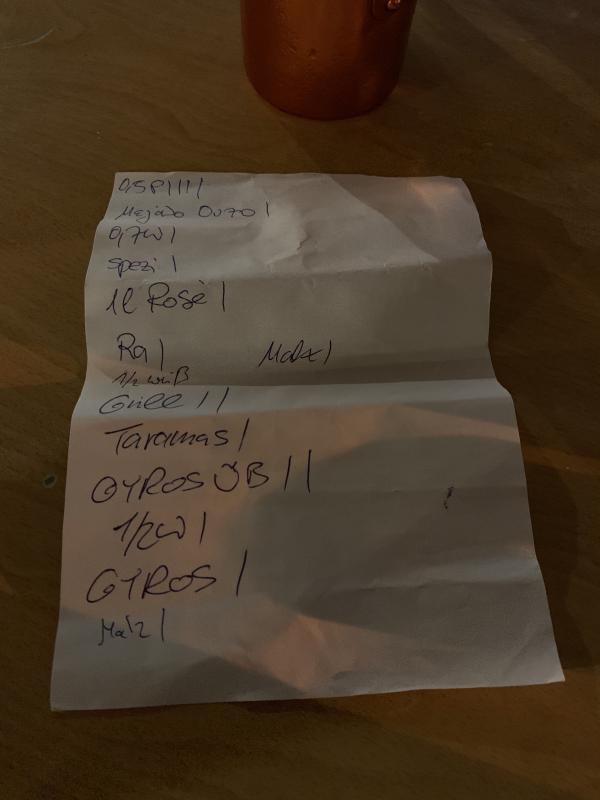 0,5P||||
Ouzo |
0,7W |
Spezi |
1l Rosé |
Ra | Malz |
1/2 weiß
Grill ||
Taramas |
GYROS ÜB ||
1/2W |
GYROS |
Malz |